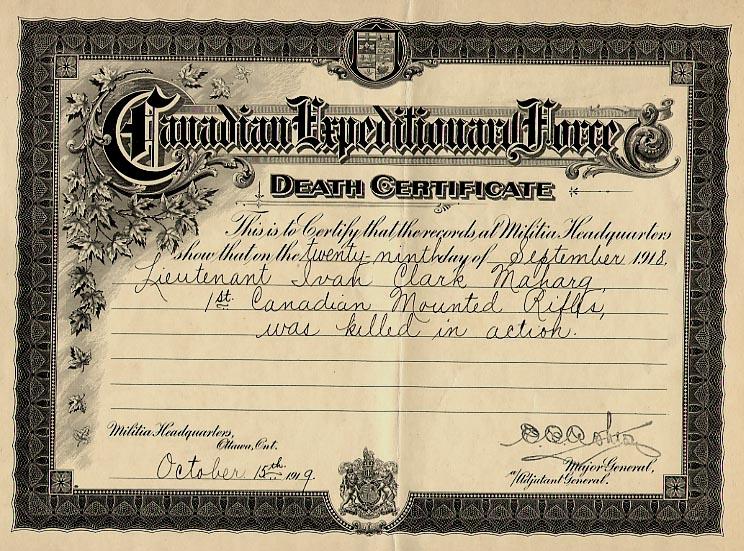 Canadian Expeditionary Force
DEATH CERTIFICATE
This is to Certify that the records at Militia Headquarters
show that on the twenty-ninth day of September 1918.
Lieutenant Ivan Clark Maharg,
1st. Canadian Mounted Rifles,
was killed in action.
Militia Headquarters,
Ottawa, Ont.
October 15th. 1919.
Major General,
Adjutant General.